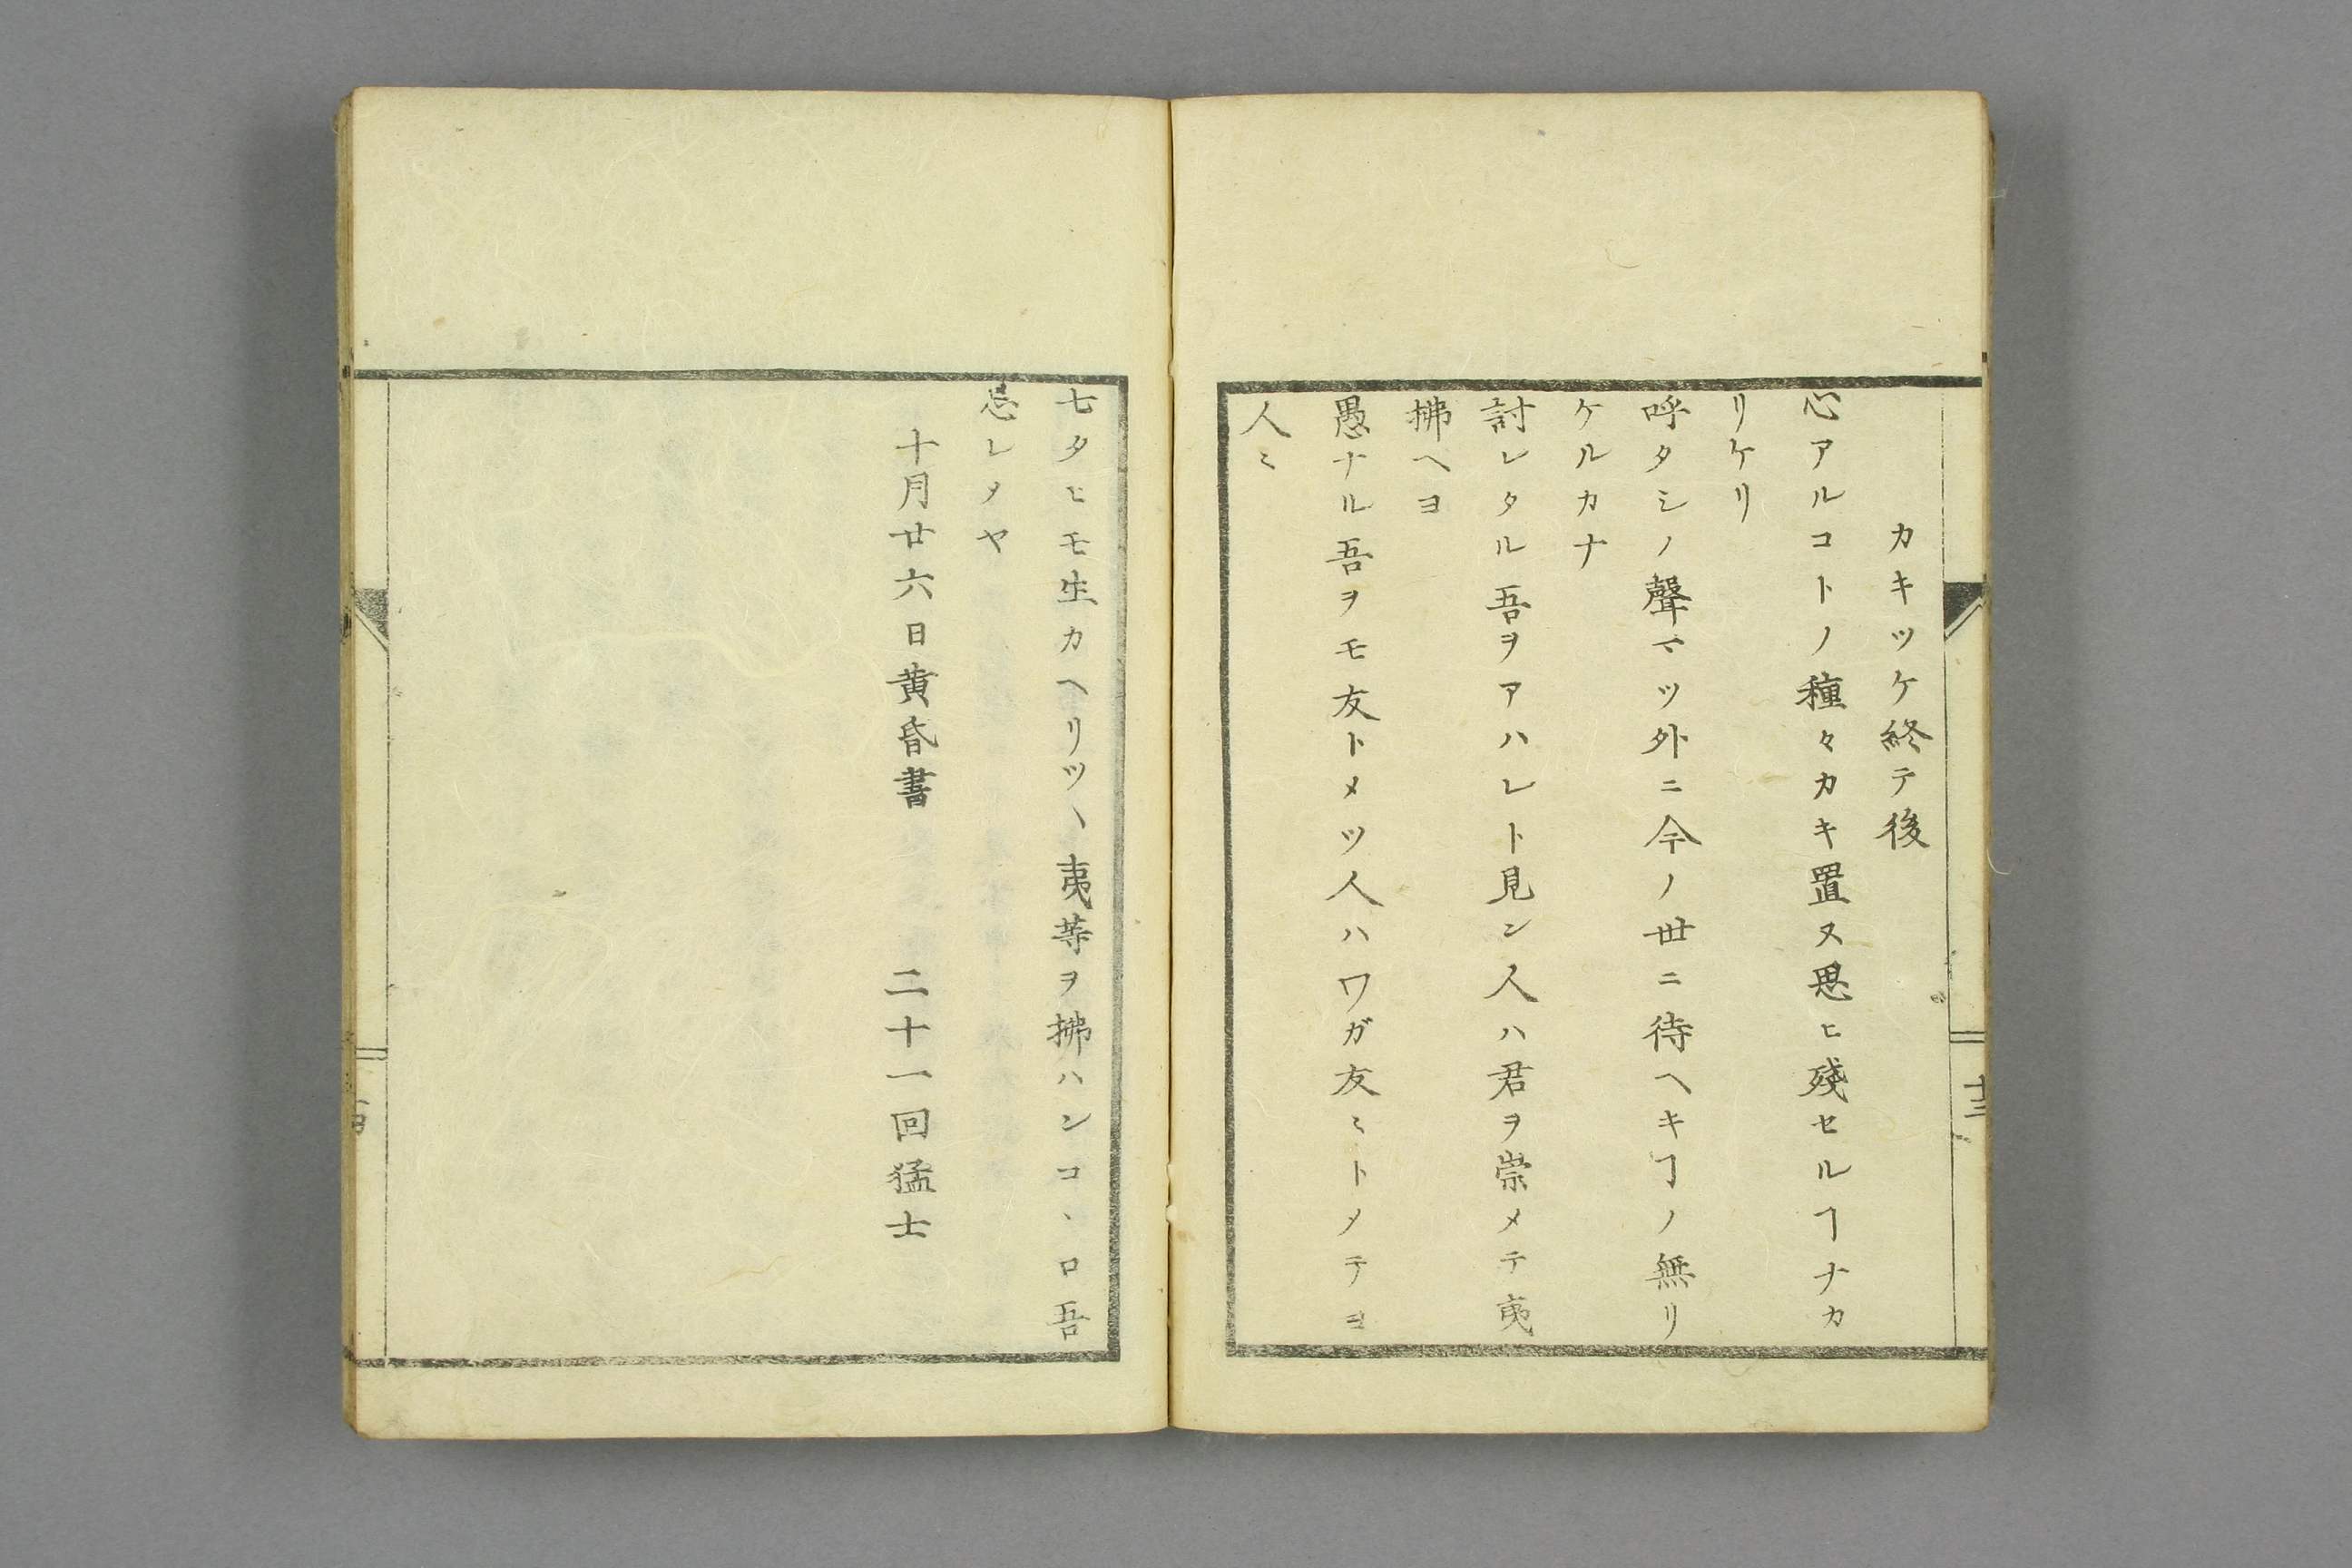 カキツケ終テ後
心アルコトノ種々カキ置ヌ思ヒ殘セルヿナカ
リケリ
呼タシノ聲マツ外ニ今ノ世ニ待ヘキヿノ無リ
ケルカナ
討レタル吾ヲアハレト見ン人ハ君ヲ崇メテ夷
拂ヘヨ
愚ナル吾ヲモ友トメツ人ハワガ友ミトメテヨ
人ミ
十三
七タヒモ生カヘリツヽ夷等ヲ拂ハンコヽロ吾
忘レメヤ
十月廿六日黄昏書 二十一回猛士